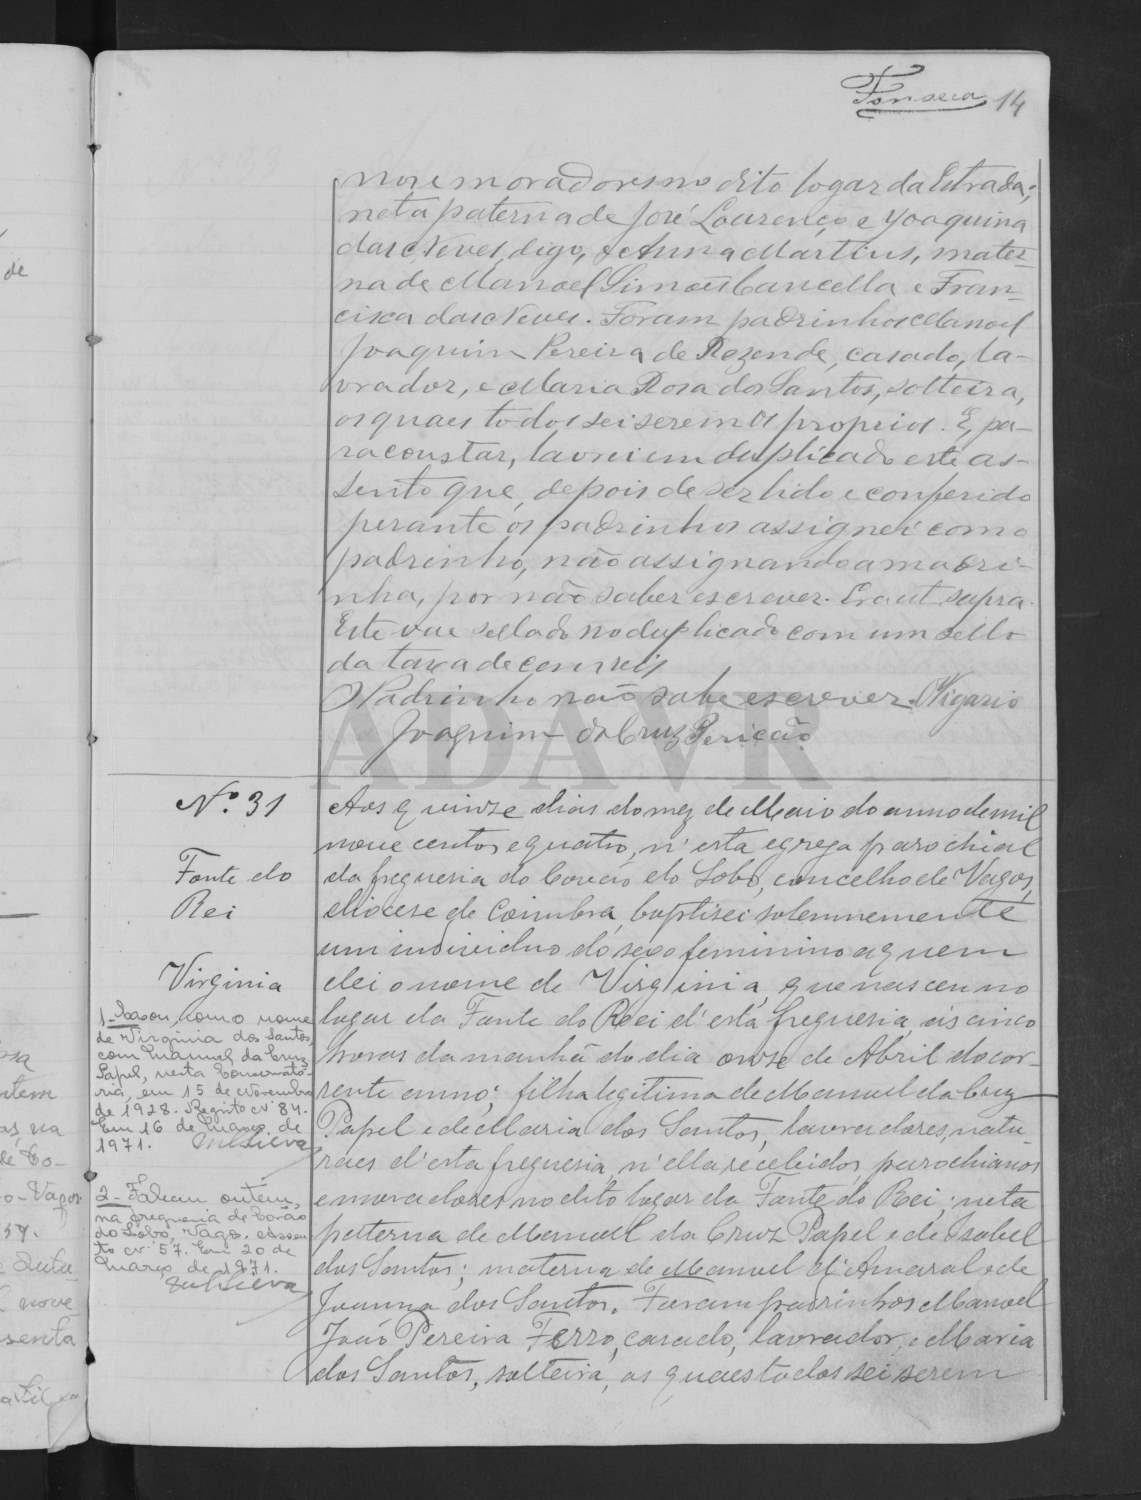 Fonseca 14
nos e moradores no dito logar da Estrada;
neta paterna de José Lourenço e Joaquina
das Neves, digo, e Anna Martins, mater-
na de Manoel Simões Cancella e Fran-
cisca das Neves. Foram padrinhos Manoel
Joaquim Pereira de Rezende, casado, la-
vrador, e Maria Rosa dos Santos, solteira,
os quaes todos sei serem os proprios. E, pa-
ra constar, lavrei em duplicado este as-
sento que, depois de ser lido e conferido
perante os padrinhos assignei com o
padrinho, não assignando a madri-
nha, por não saber escrever. Era ut supra.
Este vae sellado no duplicado com um sello
da taxa de cem reis
O Padrinho não sabe escrever. O Vigario
Joaquim da Cruz Pericão
ADAVR
Nº 31
Fonte do
Rei
Virginia
1-Casou, com o nome
de Virginia dos Santos,
com Manuel da Cruz
Papel, nesta Conservató-
ria, em 15 de Novembro
de 1928. Registo nº 84.
Em 16 de Março de
1971.
2- Faleceu ontem,
na freguesia de Covão
do Lobo, Vagos. Assen-
to nº 57. Em 20 de
Março de 1971.
Aos quinze dias do mez de Maio do anno de mil
nove centos e quatro, n'esta egreja parochial
da freguesia do Covão do Lobo, concelho de Vagos,
diocese de Coimbra, baptisei solemnemente
um individuo do sexo feminino a quem
dei o nome de Virginia, que nasceu no
lugar da Fonte do Rei d'esta freguesia, ás cinco
horas da manhã do dia onze de Abril do cor-
rente anno; filha legitima de Manuel da Cruz
Papel e de Maria dos Santos, lavradores, natu-
raes d'esta freguesia, n'ella recebidos, parochianos
e moradores no dito lugar da Fonte do Rei; neta
patterna de Manuel da Cruz Papel e de Isabel
dos Santos; materna de Manuel d'Amaral e de
Joanna dos Santos. Foram padrinhos Manoel
João Pereira Ferro, casado, lavrador, e Maria
dos Santos, solteira, os quaes todos sei serem